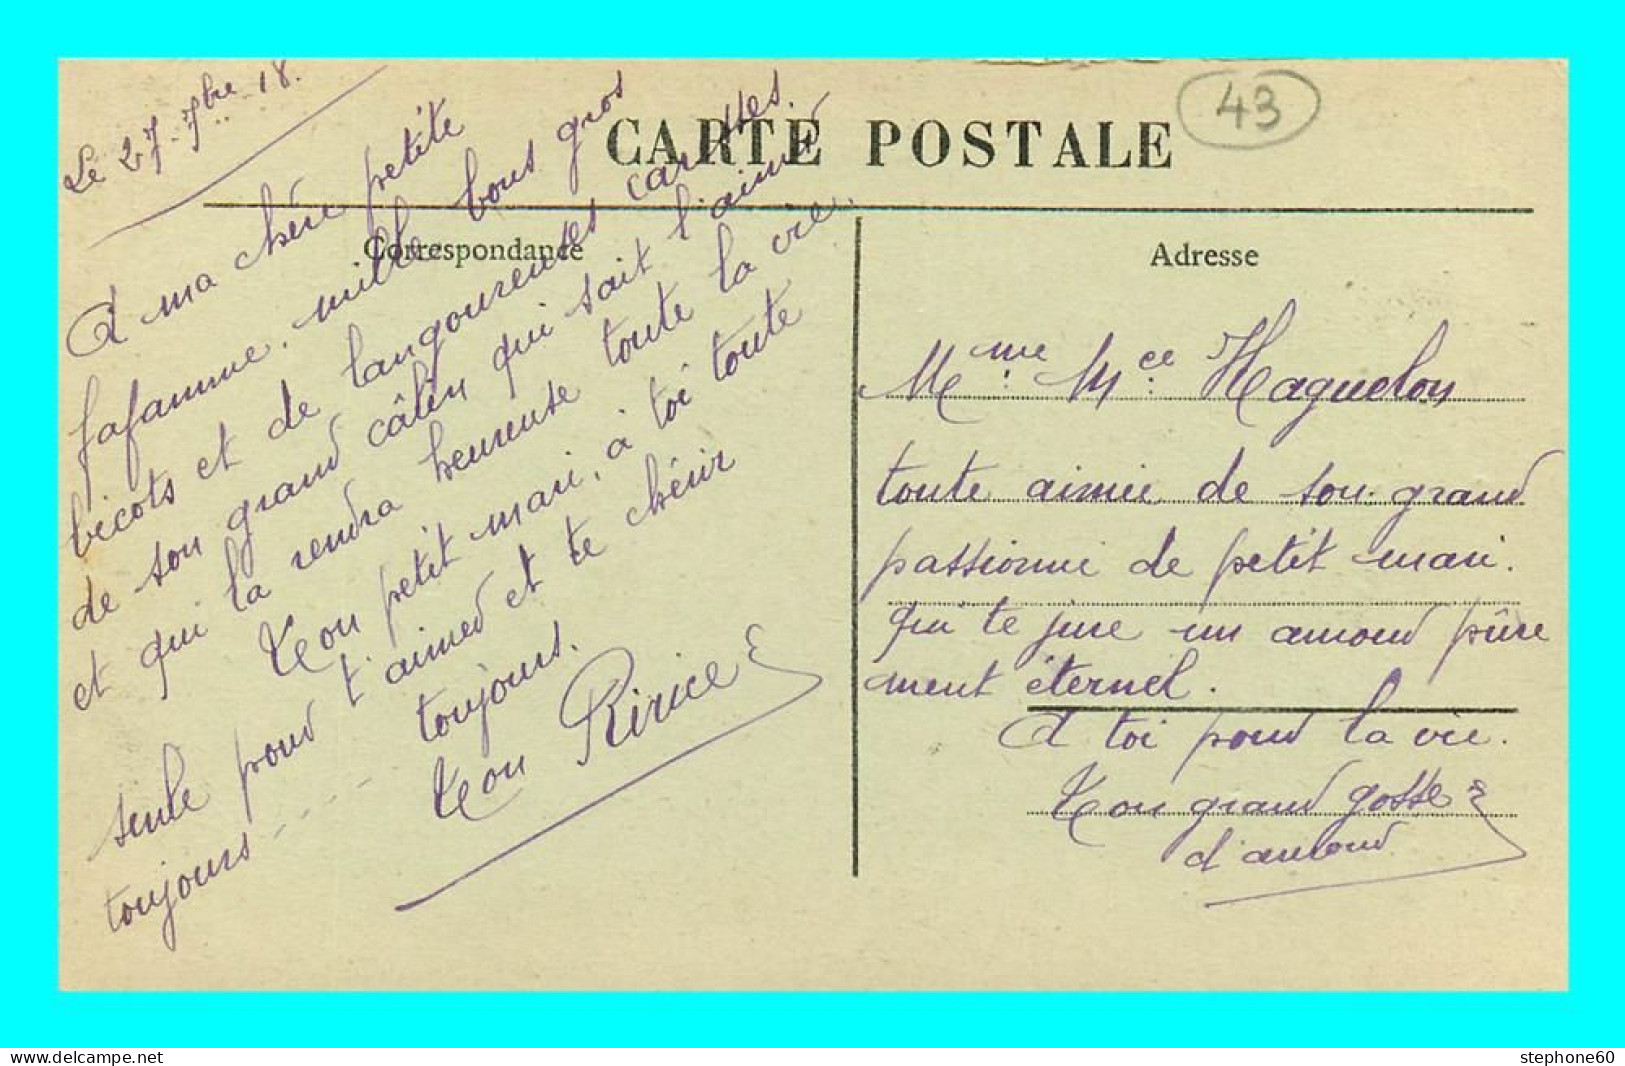 Le 27-7bre 18.
CARTE POSTALE
43
Correspondance
Adresse
A ma chère petite
fafamme, mille bons gros
bicots et de langoureuses caresses.
de son grand câlin qui sait l'aimer
et qui la rendra heureuse toute la vie.
Ton petit mari, à toi toute
seule pour t'aimer et te chérir
toujours---- toujours.
Ton Ririce
Mme Mce Haguelon
toute aimée de son grand
passionné de petit mari.
qui te jure un amour pûre
ment éternel.
A toi pour la vie.
Ton grand gosse
d'amour
stephone60